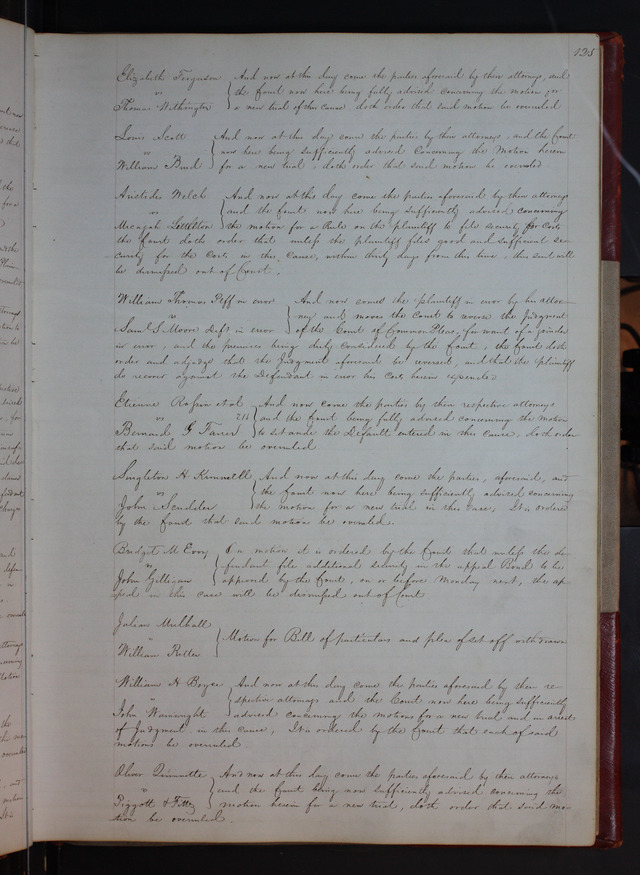 125
Elizabeth Ferguson And now at this day come the parties aforesaid by their attorneys, and
vs the Court now here being fully advised concerning the motion for
Thomas Withington a new trial of this cause, doth order that said motion be overruled
Louis Scott And now at this day come the parties by their attorneys, and the Court
vs now here being sufficiently advised concerning the Motion herein
William Burd for a new trial, doth order that said motion be overruled
Aristides Welch And now at this day come the parties aforesaid by their attorneys
vs and the Court now here being sufficiently advised concerning
Micajah Littleton the motion for a Rule on the plaintiff to file security for Costs
the Court doth order that unless the plaintiff files good and sufficient se-
curity for the Costs in this cause, within thirty days from this time, this suit will
be dismissed out of Court.
William Thomas Plff in error And now comes the plaintiff in error by his attor-
vs ney and moves the Court to reverse the judgment
Saml S. Moore deft in error of the Court of Common Pleas, for want of a joinder
in error, and the premises being duly considered by the Court, the Court doth
order and adjudge that the Judgment aforesaid be reversed, and that the plaintiff
do recover against the Defendant in error his Costs herein expended
Etienne et al And now come the parties by their respective attorneys
vs 211 and the Court being fully advised concerning the motion
Bernard G Farrer to set aside the Default entered in this cause, doth order
that said motion be overruled
Singleton H Kimmell And now at this day come the parties, aforesaid, and
vs the Court now here being sufficiently advised concerning
John Scudder the motion for a new trial in this case, It is ordered
by the Court that said motion be overruled.
Bridget McEvoy On motion it is ordered by the Court that unless the de-
vs fendant file additional security in the appeal Bond to be
John Gilligan approved by the Court, on or before Monday next, the ap-
peal in this case will be dismissed out of Court
Julian Mulhall
vs Motion for Bill of particulars and plea of set off withdrawn
William Ritter
William H Boyce And now at this day come the parties aforesaid by their re-
vs spective attorneys and the Court now here being sufficiently
John Wainwright advised concerning the motions for a new trial and in arrest
of Judgment in this cause, It is ordered by the Court that each of said
motions be overruled
Oliver Quinnette And now at this day come the parties aforesaid by their attorneys
vs and the Court being now sufficiently advised concerning the
Piggott & motion herein for a new trial, doth order that said mo-
tion be overruled.